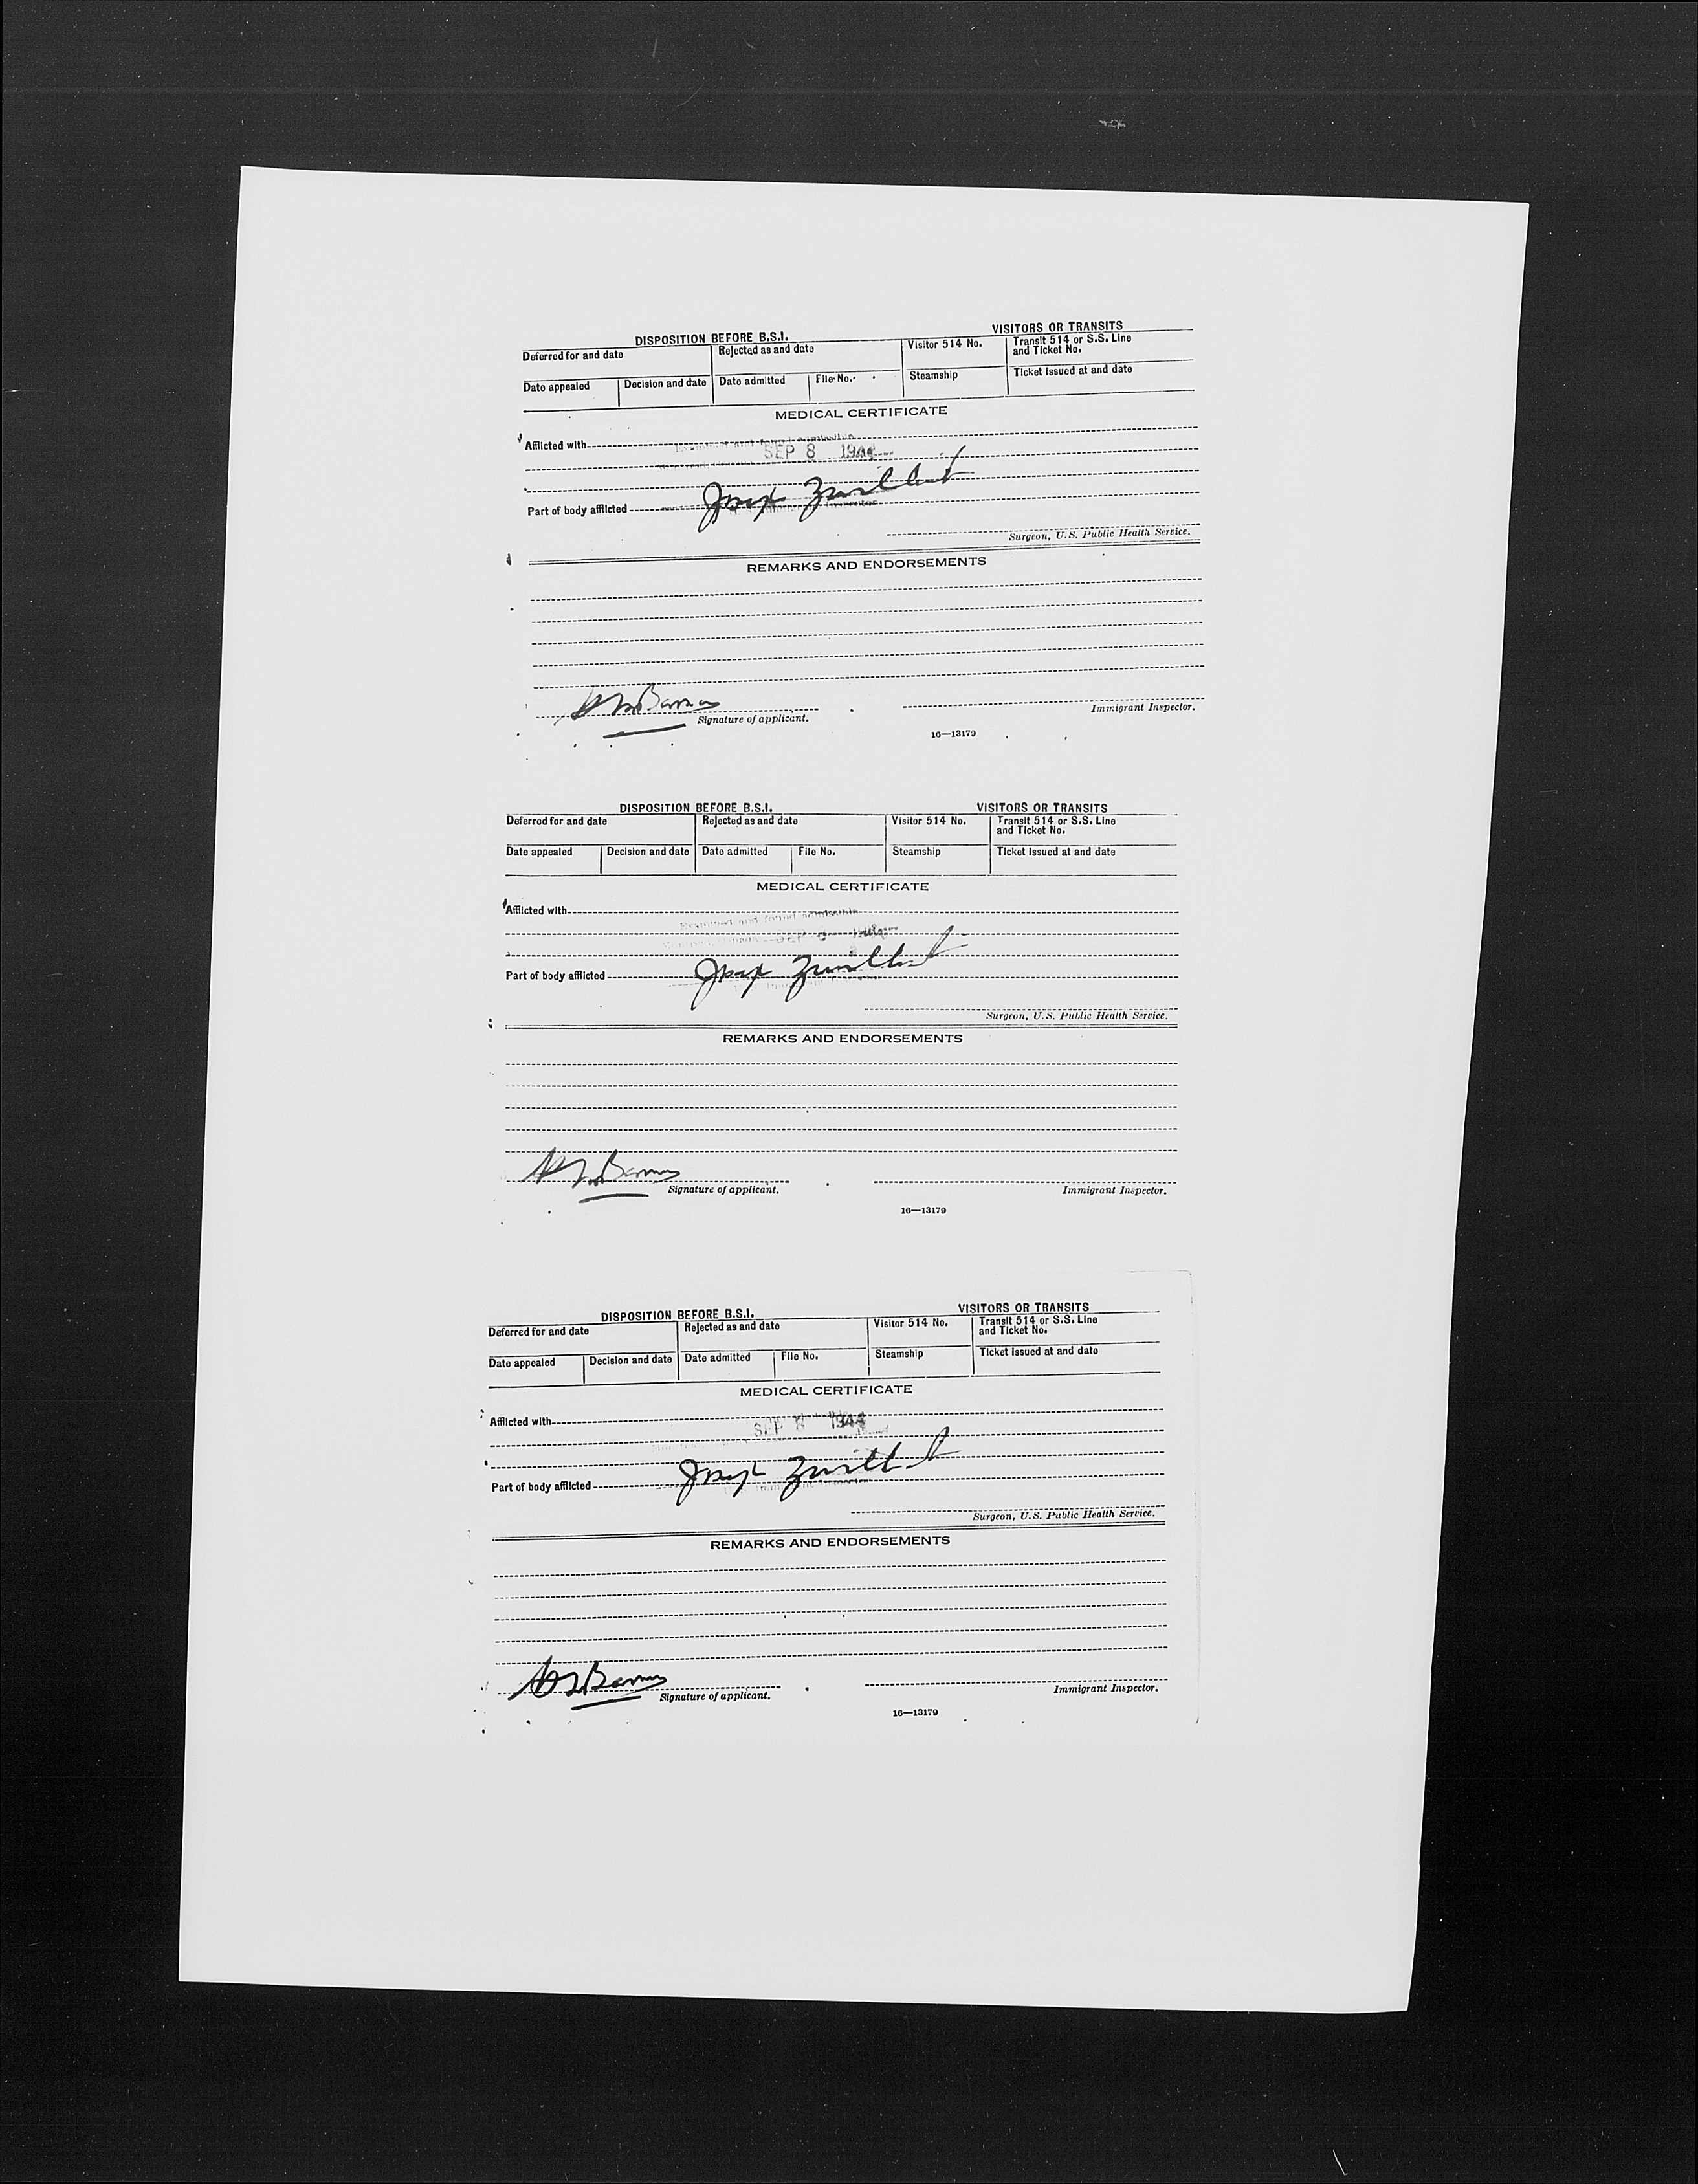 DISPOSITION BEFORE B.S.I. VISITORS OR TRANSITS
Deferred for and date Rejected as and date Visitor 514 No. Transit 514 or S.S. Line and Ticket No.
Date appealed Decision and date Date admitted File No. Steamship Ticket issued at and date
MEDICAL CERTIFICATE
Afflicted with
Examined and found admissible
SEP 8 1944
Part of body afflicted Joseph
Surgeon, U.S. Public Health Service.
REMARKS AND ENDORSEMENTS
Barnes
Signature of applicant. Immigrant Inspector.
16—13179
DISPOSITION BEFORE B.S.I. VISITORS OR TRANSITS
Deferred for and date Rejected as and date Visitor 514 No. Transit 514 or S.S. Line and Ticket No.
Date appealed Decision and date Date admitted File No. Steamship Ticket issued at and date
MEDICAL CERTIFICATE
Afflicted with
Examined and found admissible
SEP 8
Part of body afflicted Joseph
Surgeon, U.S. Public Health Service.
REMARKS AND ENDORSEMENTS
Barnes
Signature of applicant. Immigrant Inspector.
16—13179
DISPOSITION BEFORE B.S.I. VISITORS OR TRANSITS
Deferred for and date Rejected as and date Visitor 514 No. Transit 514 or S.S. Line and Ticket No.
Date appealed Decision and date Date admitted File No. Steamship Ticket issued at and date
MEDICAL CERTIFICATE
Afflicted with
SEP 8 1944
Part of body afflicted Joseph
Surgeon, U.S. Public Health Service.
REMARKS AND ENDORSEMENTS
Barnes
Signature of applicant. Immigrant Inspector.
16—13179